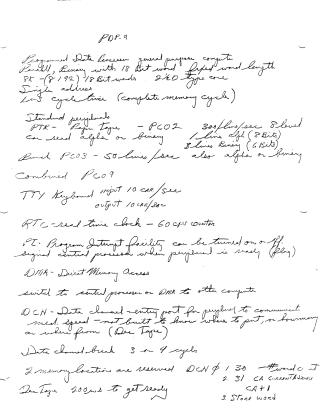 PDP-9
Programmed Data Processor general purpose computer
Parallel, Binary with 18 Bit word fixed word length
8K - (8192) 18 Bit words
Single address
cycle time (complete memory cycle)
Standard peripherals
PTR - Paper Tape - PC02 300 lines/sec 8 level
can read alpha or binary 1 line alpha (8 Bits)
3 lines Binary (6 Bits)
Punch PC03 - 50 lines/sec also alpha or binary
Combined PC09
TTY Keyboard input 10 CAR/sec
output 10 CAR/sec
RTC - real time clock - 60 counter
PI - Program Interrupt facility can be turned on or off
signal central processor when peripheral is ready (flag)
DMA - Direct Memory Access
to central processor or DMA to other computer
DCH - Data channel - entry port for peripherals to communicate
med. speed - not built to know where to put, or how many
or where from (Dec Tape)
Data channel break 3 or 4 cycles
2 memory locations are reserved DCH 1. 30 word c
2. 31 CA Current Address
CA+1
3. Store word
Dec Tape 200 to get ready